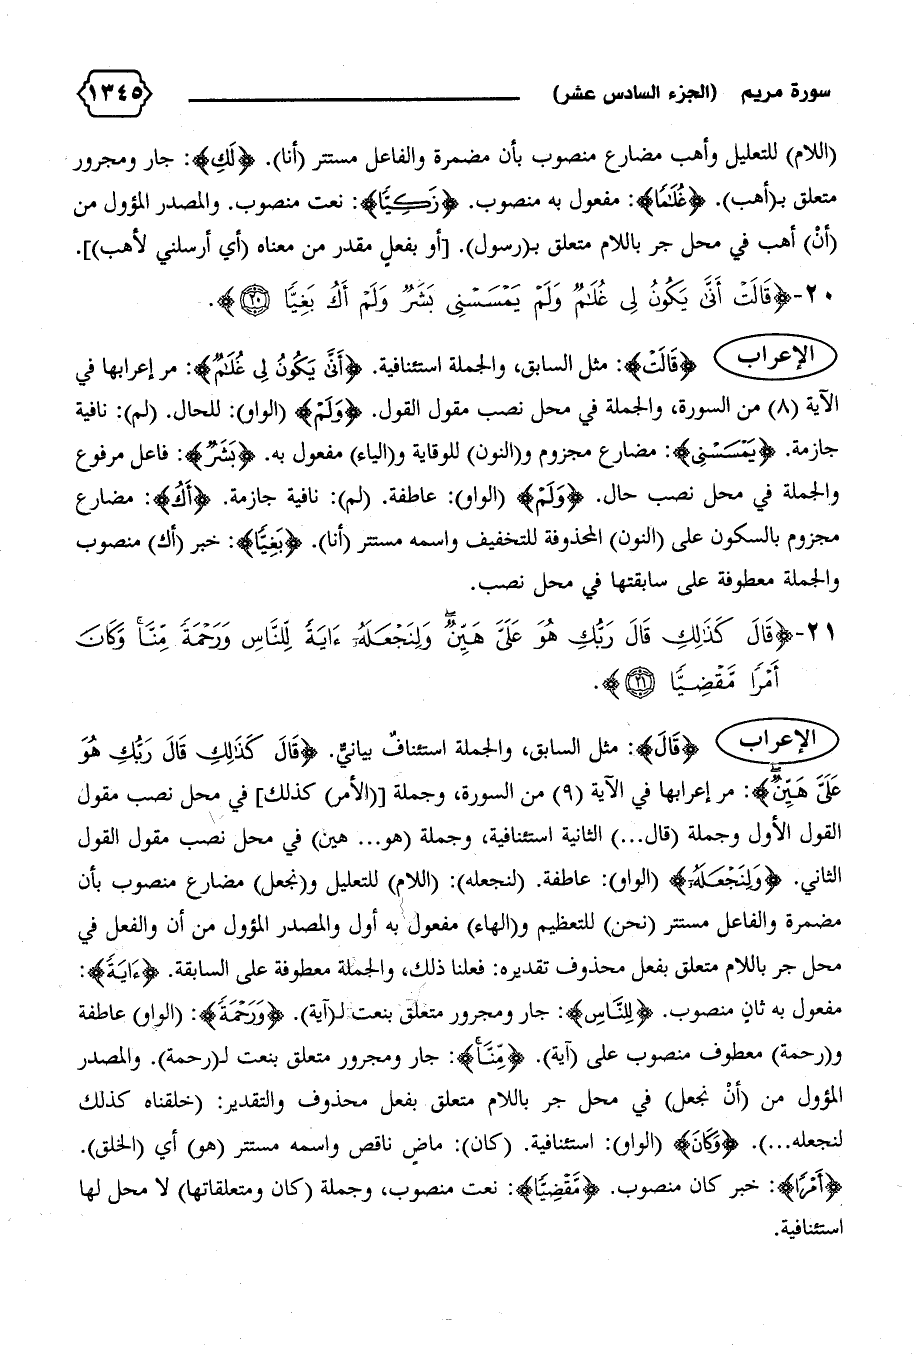 سورة مريم (الجزء السادس عشر) ١٣٤٥
(اللام) للتعليل وأهب مضارع منصوب بأن مضمرة والفاعل مستتر (أنا). ﴿لَكِ﴾: جار ومجرور
متعلق بـ(أهب). ﴿غُلَٰمًا﴾: مفعول به منصوب. ﴿زَكِيًّا﴾: نعت منصوب. والمصدر المؤول من
(أنْ) أهب في محل جر باللام متعلق بـ(رسول). [أو بفعلٍ مقدر من معناه (أي أرسلني لأهب)].
٢٠-﴿قَالَتْ أَنَّىٰ يَكُونُ لِى غُلَٰمٌ وَلَمْ يَمْسَسْنِى بَشَرٌ وَلَمْ أَكُ بَغِيًّا ۝٢٠﴾.
الإعراب ﴿قَالَتْ﴾: مثل السابق، والجملة استئنافية. ﴿أَنَّىٰ يَكُونُ لِى غُلَٰمٌ﴾: مر إعرابها في
الآية (٨) من السورة، والجملة في محل نصب مقول القول. ﴿وَلَمْ﴾ (الواو): للحال. (لم): نافية
جازمة. ﴿يَمْسَسْنِى﴾: مضارع مجزوم و(النون) للوقاية و(الياء) مفعول به. ﴿بَشَرٌ﴾: فاعل مرفوع
والجملة في محل نصب حال. ﴿وَلَمْ﴾ (الواو): عاطفة. (لم): نافية جازمة. ﴿أَكُ﴾: مضارع
مجزوم بالسكون على (النون) المحذوفة للتخفيف واسمه مستتر (أنا). ﴿بَغِيًّا﴾: خبر (أك) منصوب
والجملة معطوفة على سابقتها في محل نصب.
٢١-﴿قَالَ كَذَٰلِكِ قَالَ رَبُّكِ هُوَ عَلَىَّ هَيِّنٌ ۖ وَلِنَجْعَلَهُۥٓ ءَايَةً لِّلنَّاسِ وَرَحْمَةً مِّنَّا ۚ وَكَانَ
أَمْرًا مَّقْضِيًّا ۝٢١﴾.
الإعراب ﴿قَالَ﴾: مثل السابق، والجملة استئنافٌ بيانيٌّ. ﴿قَالَ كَذَٰلِكِ قَالَ رَبُّكِ هُوَ
عَلَىَّ هَيِّنٌ ۖ﴾: مر إعرابها في الآية (٩) من السورة، وجملة [(الأمر) كذلك] في محل نصب مقول
القول الأول وجملة (قال...) الثانية استئنافية، وجملة (هو... هين) في محل نصب مقول القول
الثاني. ﴿وَلِنَجْعَلَهُۥٓ﴾ (الواو): عاطفة. (لنجعله): (اللام) للتعليل و(نجعل) مضارع منصوب بأن
مضمرة والفاعل مستتر (نحن) للتعظيم و(الهاء) مفعول به أول والمصدر المؤول من أن والفعل في
محل جر باللام متعلق بفعل محذوف تقديره: فعلنا ذلك، والجملة معطوفة على السابقة. ﴿ءَايَةً﴾:
مفعول به ثانٍ منصوب. ﴿لِلنَّاسِ﴾: جار ومجرور متعلق بنعت لـ(آية). ﴿وَرَحْمَةً﴾: (الواو) عاطفة
و(رحمة) معطوف منصوب على (آية). ﴿مِّنَّا ۚ﴾: جار ومجرور متعلق بنعت لـ(رحمة). والمصدر
المؤول من (أنْ نجعل) في محل جر باللام متعلق بفعل محذوف والتقدير: (خلقناه كذلك
لنجعله...). ﴿وَكَانَ﴾ (الواو): استئنافية. (كان): ماضٍ ناقص واسمه مستتر (هو) أي (الخلق).
﴿أَمْرًا﴾: خبر كان منصوب. ﴿مَّقْضِيًّا﴾: نعت منصوب، وجملة (كان ومتعلقاتها) لا محل لها
استئنافية.